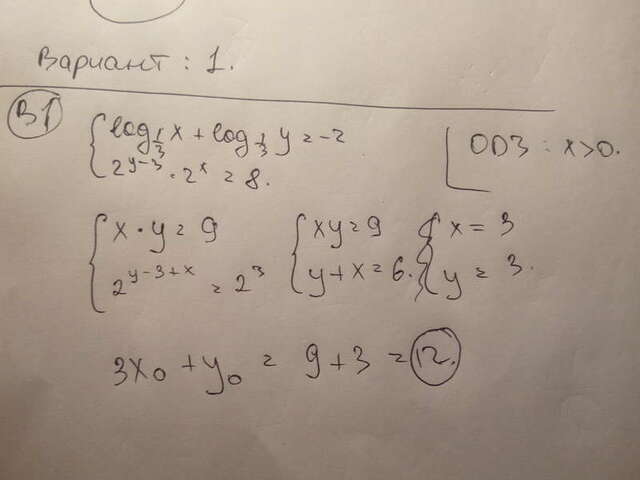 Вариант: 1.
В1
{ log_{1/3} x + log_{1/3} y = -2
2^{y-3} · 2^x = 8.
ОДЗ: x>0.
{ x · y = 9
2^{y-3+x} = 2^3
{ xy = 9
y + x = 6.
{ x = 3
y = 3.
3x₀ + y₀ = 9 + 3 = 12.